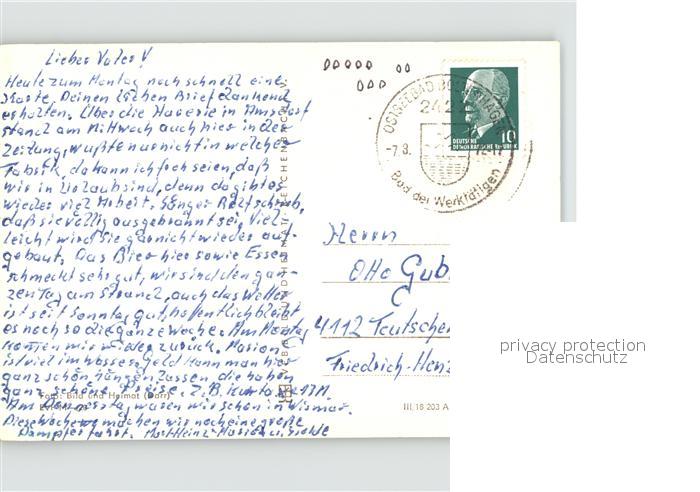 Lieber Vater!
Heute zum Montag noch schnell eine
Karte. Deinen lieben Brief dankend
erhalten. Über die Havarie in
stand am Mittwoch auch hier in der
Zeitung, wußte nur nicht in welcher
Fabrik, da kann ich froh sein, daß
wir in Urlaub sind, denn da gibt es
wieder viel Arbeit. schrieb,
daß sie völlig ausgebrannt sei, viel-
leicht wird sie gar nicht wieder auf-
gebaut. Das Bier hier sowie Essen
schmeckt sehr gut, wir sind den gan-
zen Tag am Strand, auch das Wetter
ist seit Sonntag gut, hoffentlich bleibt
es noch so die ganze Woche. Am Montag
kommen wir wieder zurück. Marion
ist viel im Wasser. Geld kann man hier
ganz schön hängen lassen die haben
ganz schöne Preise. z.B.
Am Donnerstag waren wir schon in Wismar.
Diese Woche machen wir noch eine große
Dampferfahrt. Marion u.
Foto: Bild und Heimat (Darr)
VERLAG BILD UND HEIMAT REICHENBACH
OSTSEEBAD BOLTENHAGEN
242
-7.8.
Bad der Werktätigen
10
DEUTSCHE
DEMOKRATISCHE REPUBLIK
Herrn
Otto Gub
4112 Teutschen
Friedrich-Henz
III.18 203 A
privacy protection
Datenschutz